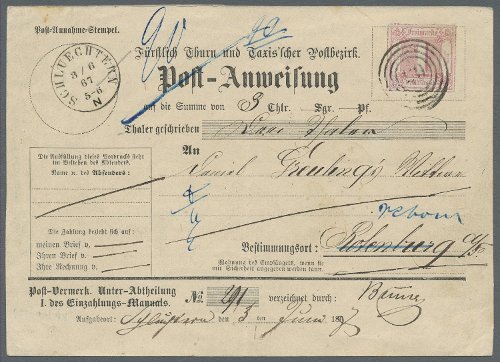 Post-Annahme-Stempel.
90
Freimarke
SCHLUECHTERN
3/6
67
5-6
N
Fürstlich Thurn und Taxis'scher Postbezirk.
Post-Anweisung
auf die Summe von 3 Thlr. Sgr. Pf.
Thaler geschrieben Drei Thaler
An
Die Ausfüllung dieses Vordrucks steht
im Belieben des Absenders.
Name u. des Absenders:
Daniel
Die Zahlung bezieht sich auf:
meinen Brief v.
Ihren Brief v.
Ihre Rechnung v.
retour
Bestimmungsort: Rotenburg a/F
Wohnung des Empfängers, wenn sie
mit Sicherheit angegeben werden kann.
Post-Vermerk. Unter-Abtheilung
I. des Einzahlungs-Manuals.
No. 41 verzeichnet durch:
Aufgabeort: Schlüchtern den 3 Juni 1867